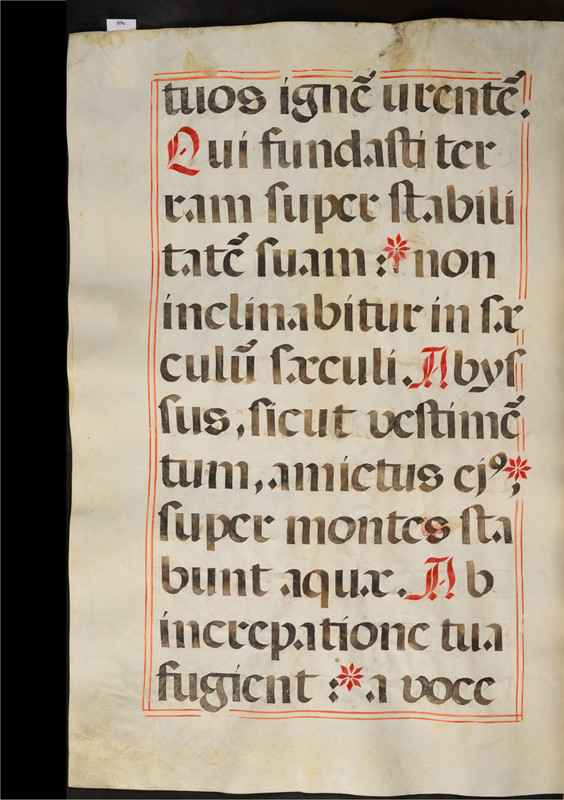 tuos ignē urentē.
Qui fundaſti ter
ram ſuper ſtabili
tatē ſuam : * non
inclinabitur in ſæ
culū ſæculi. Abyſ
ſus, ſicut veſtimē
tum, amictus ejꝰ *;
ſuper montes ſta
bunt aquæ. Ab
increpatione tua
fugient : * a voce